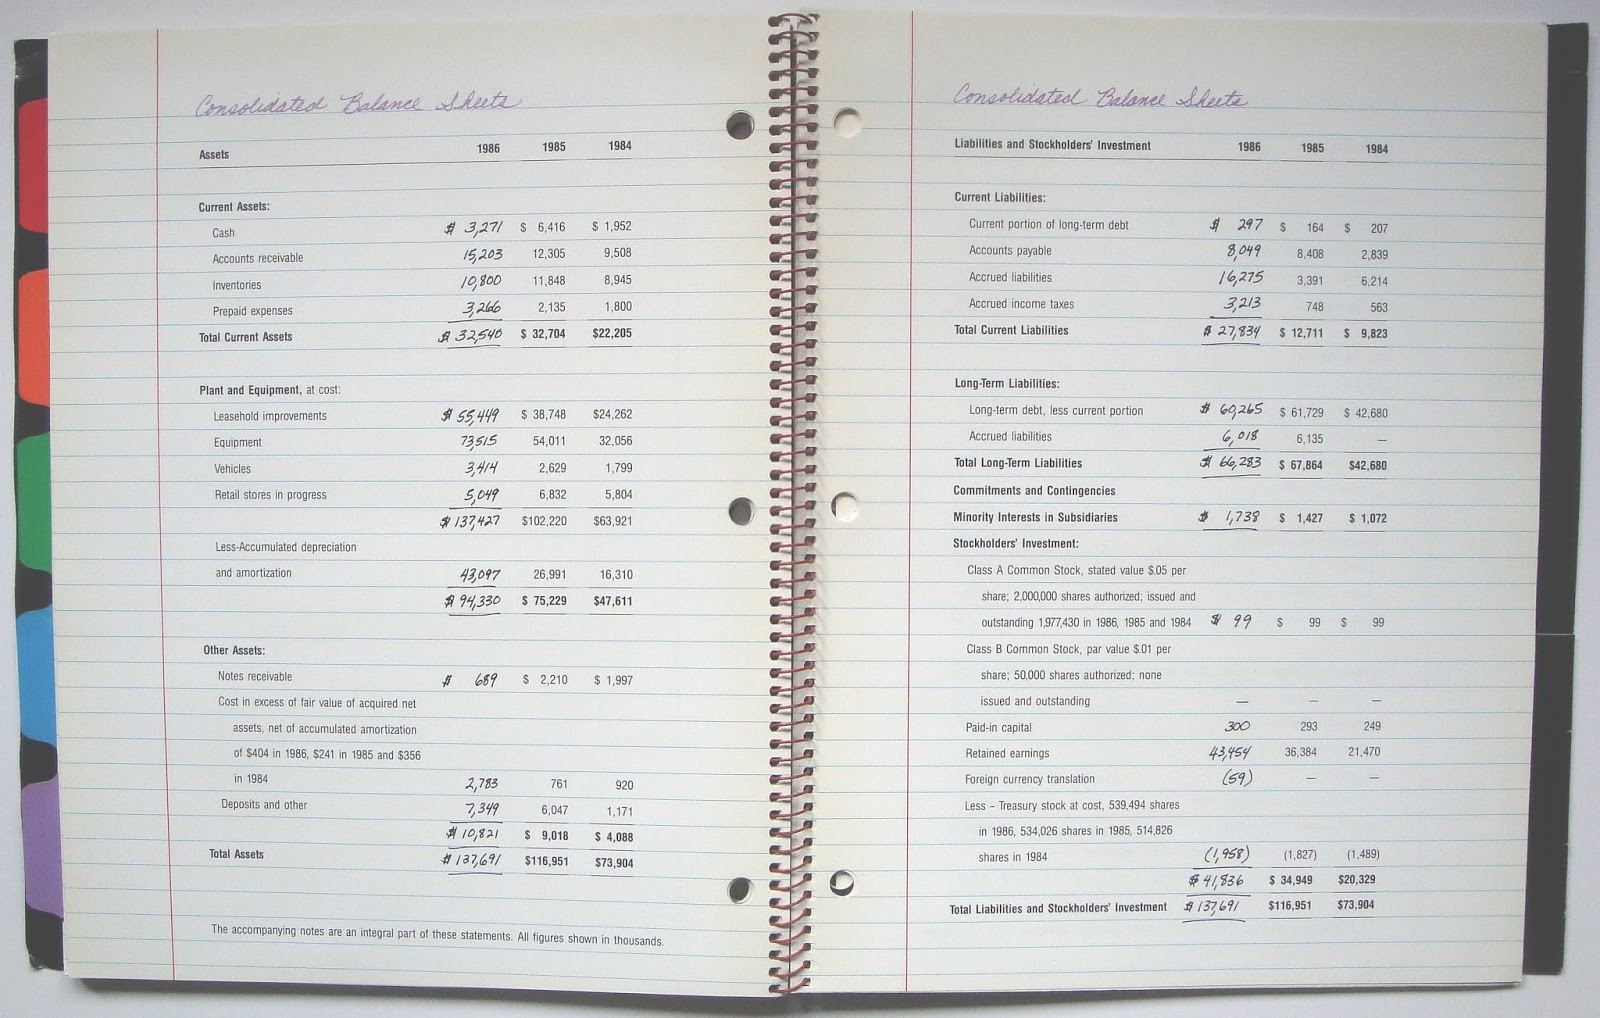 Consolidated Balance Sheets
Assets 1986 1985 1984
Current Assets:
Cash $ 3,271 $ 6,416 $ 1,952
Accounts receivable 15,203 12,305 9,508
Inventories 10,800 11,848 8,945
Prepaid expenses 3,266 2,135 1,800
Total Current Assets $ 32,540 $ 32,704 $22,205
Plant and Equipment, at cost:
Leasehold improvements $ 55,449 $ 38,748 $24,262
Equipment 73,515 54,011 32,056
Vehicles 3,414 2,629 1,799
Retail stores in progress 5,049 6,832 5,804
$ 137,427 $102,220 $63,921
Less-Accumulated depreciation
and amortization 43,097 26,991 16,310
$ 94,330 $ 75,229 $47,611
Other Assets:
Notes receivable $ 689 $ 2,210 $ 1,997
Cost in excess of fair value of acquired net
assets, net of accumulated amortization
of $404 in 1986, $241 in 1985 and $356
in 1984 2,783 761 920
Deposits and other 7,349 6,047 1,171
$ 10,821 $ 9,018 $ 4,088
Total Assets $ 137,691 $116,951 $73,904
The accompanying notes are an integral part of these statements. All figures shown in thousands.
Consolidated Balance Sheets
Liabilities and Stockholders' Investment 1986 1985 1984
Current Liabilities:
Current portion of long-term debt $ 297 $ 164 $ 207
Accounts payable 8,049 8,408 2,839
Accrued liabilities 16,275 3,391 6,214
Accrued income taxes 3,213 748 563
Total Current Liabilities $ 27,834 $ 12,711 $ 9,823
Long-Term Liabilities:
Long-term debt, less current portion $ 60,265 $ 61,729 $ 42,680
Accrued liabilities 6,018 6,135 —
Total Long-Term Liabilities $ 66,283 $ 67,864 $42,680
Commitments and Contingencies
Minority Interests in Subsidiaries $ 1,738 $ 1,427 $ 1,072
Stockholders' Investment:
Class A Common Stock, stated value $.05 per
share; 2,000,000 shares authorized; issued and
outstanding 1,977,430 in 1986, 1985 and 1984 $ 99 $ 99 $ 99
Class B Common Stock, par value $.01 per
share; 50,000 shares authorized; none
issued and outstanding — — —
Paid-in capital 300 293 249
Retained earnings 43,454 36,384 21,470
Foreign currency translation (59) — —
Less – Treasury stock at cost, 539,494 shares
in 1986, 534,026 shares in 1985, 514,826
shares in 1984 (1,958) (1,827) (1,489)
$ 41,836 $ 34,949 $20,329
Total Liabilities and Stockholders' Investment $ 137,691 $116,951 $73,904